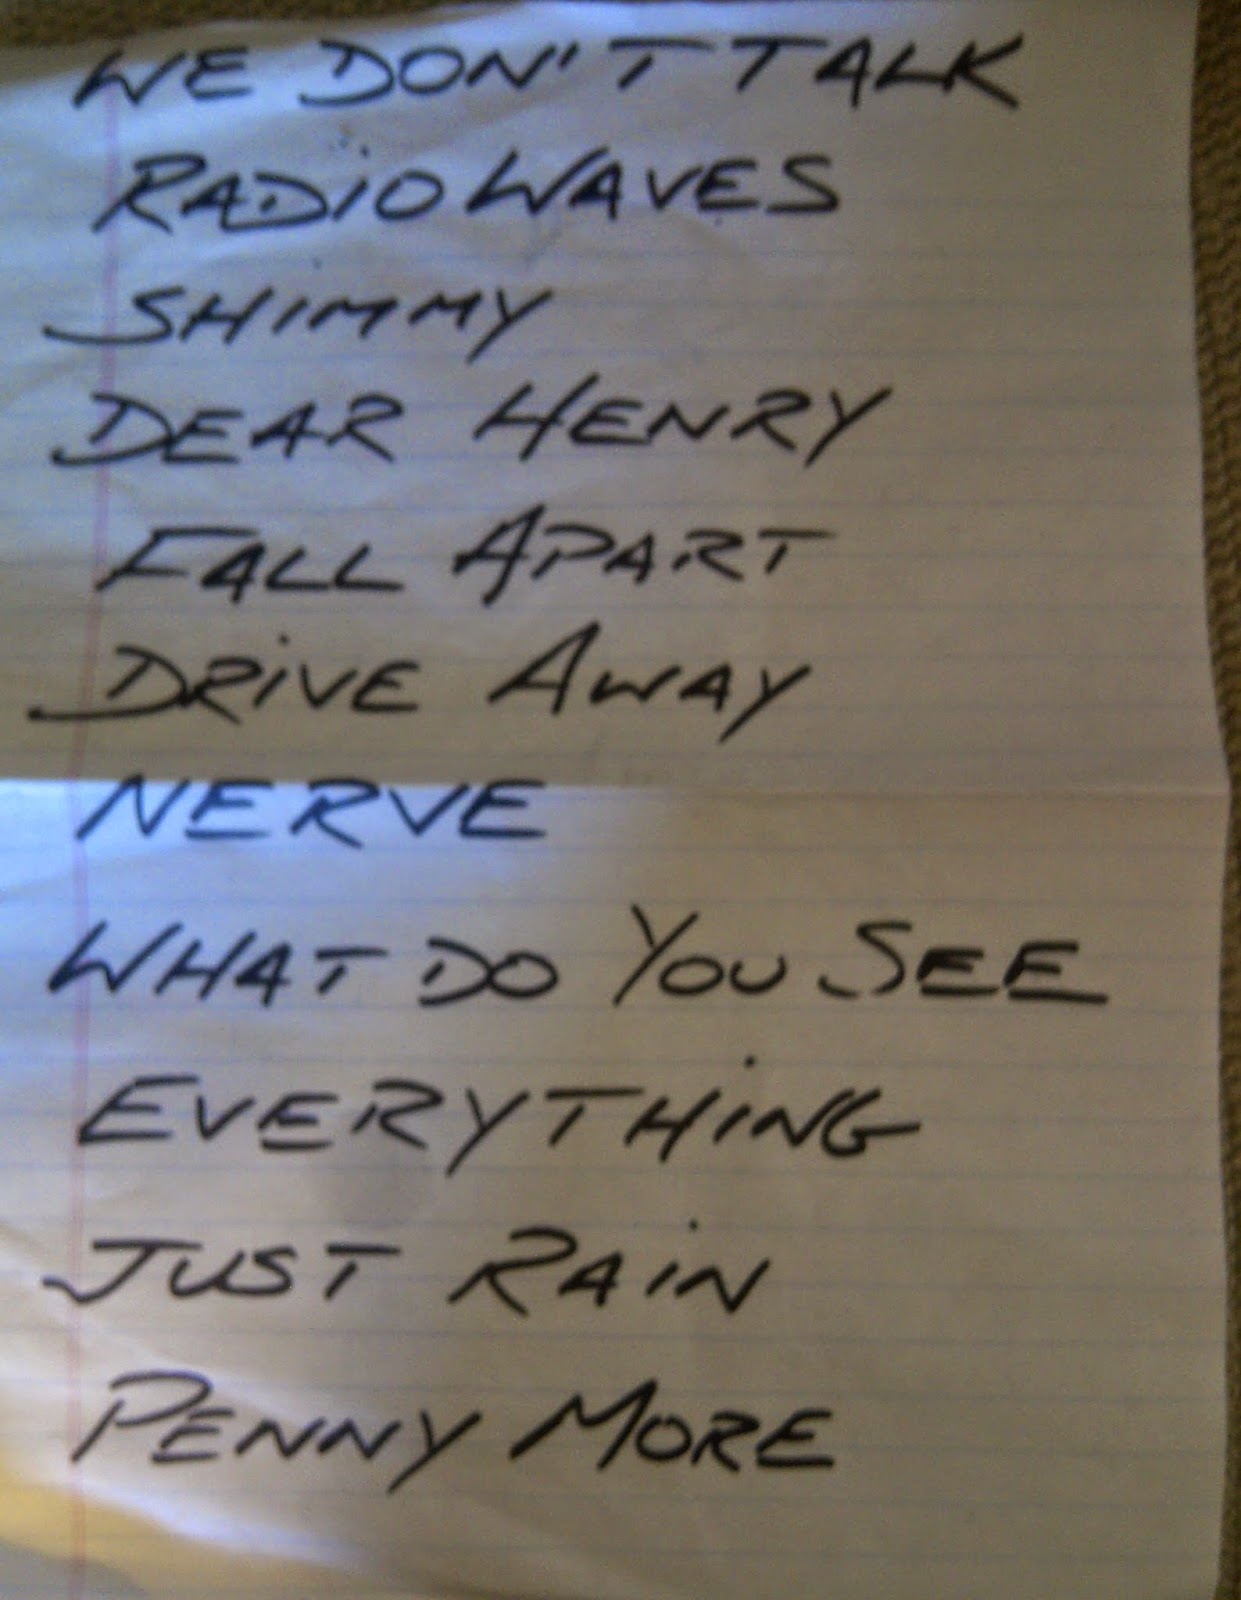 WE DON'T TALK
RADiO WAVES
SHIMMY
DEAR HENRY
FALL APART
DRiVE AWAY
NERVE
WHAT DO YOU SEE
EVERYTHiNG
JUST RAiN
PENNY MORE